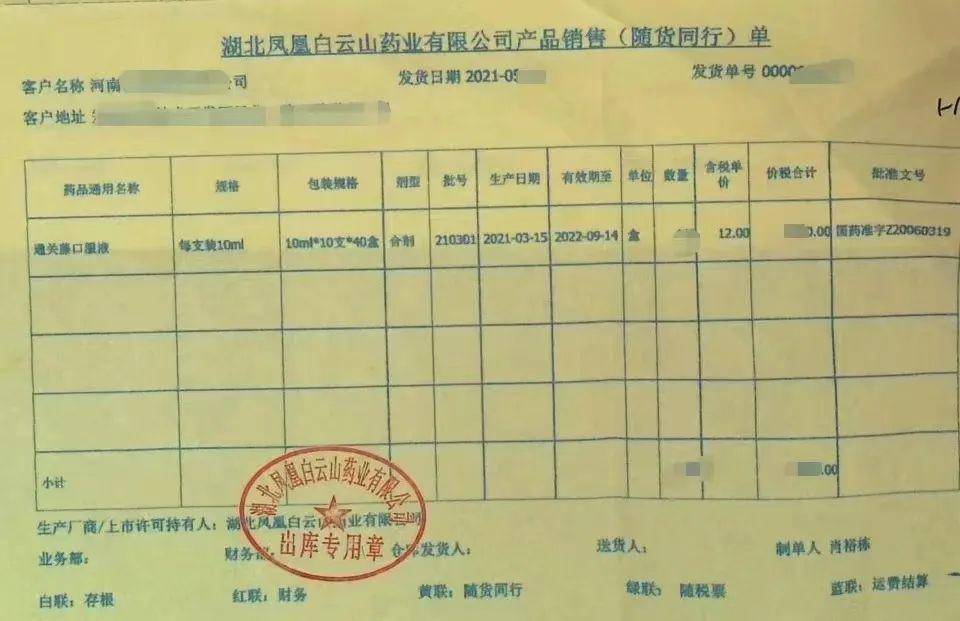 湖北凤凰白云山药业有限公司产品销售（随货同行）单
客户名称 河南 公司 发货日期 2021-05 发货单号 0000
客户地址
药品通用名称 规格 包装规格 剂型 批号 生产日期 有效期至 单位 数量 含税单价 价税合计 批准文号
通关藤口服液 每支装10ml 10ml*10支*40盒 合剂 210301 2021-03-15 2022-09-14 盒 12.00 0.00 国药准字Z20060319
小计 .00
湖北凤凰白云山药业有限公司
出库专用章
生产厂商/上市许可持有人： 湖北凤凰白云山药业有限公司
业务部： 财务部： 仓库发货人： 送货人： 制单人 肖裕栋
白联：存根 红联：财务 黄联：随货同行 绿联： 随税票 蓝联：运费结算